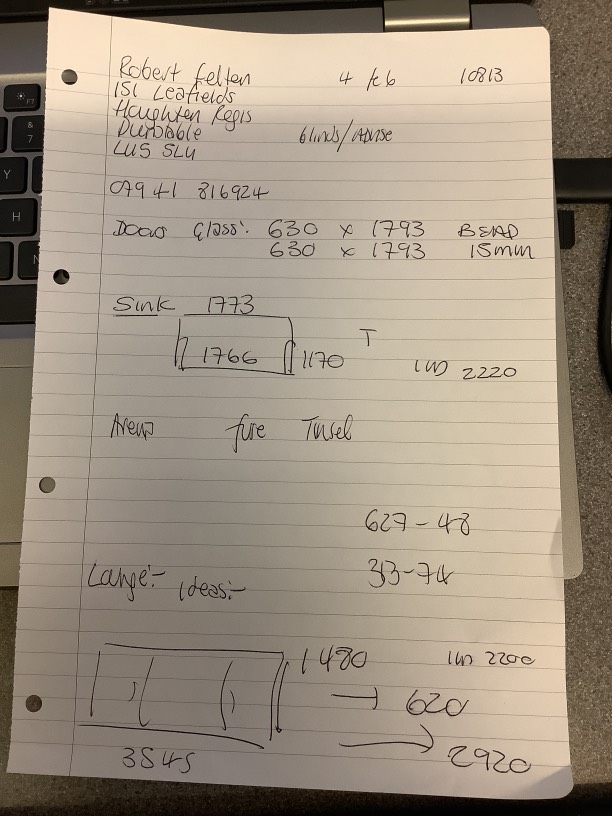 Robert Felten 4 feb 10813
151 Leafields
Houghten Regis
Dunstable blinds/Advise
LU5 5LU
07941 816924
Doors Glass:- 630 x 1793 BEAD
630 x 1793 15mm
Sink 1773
1766 1170 T
IW 2220
fire Tinsel
627-48
313-74
Large:- ideas:-
1480 IW 2200
620
3545 2920